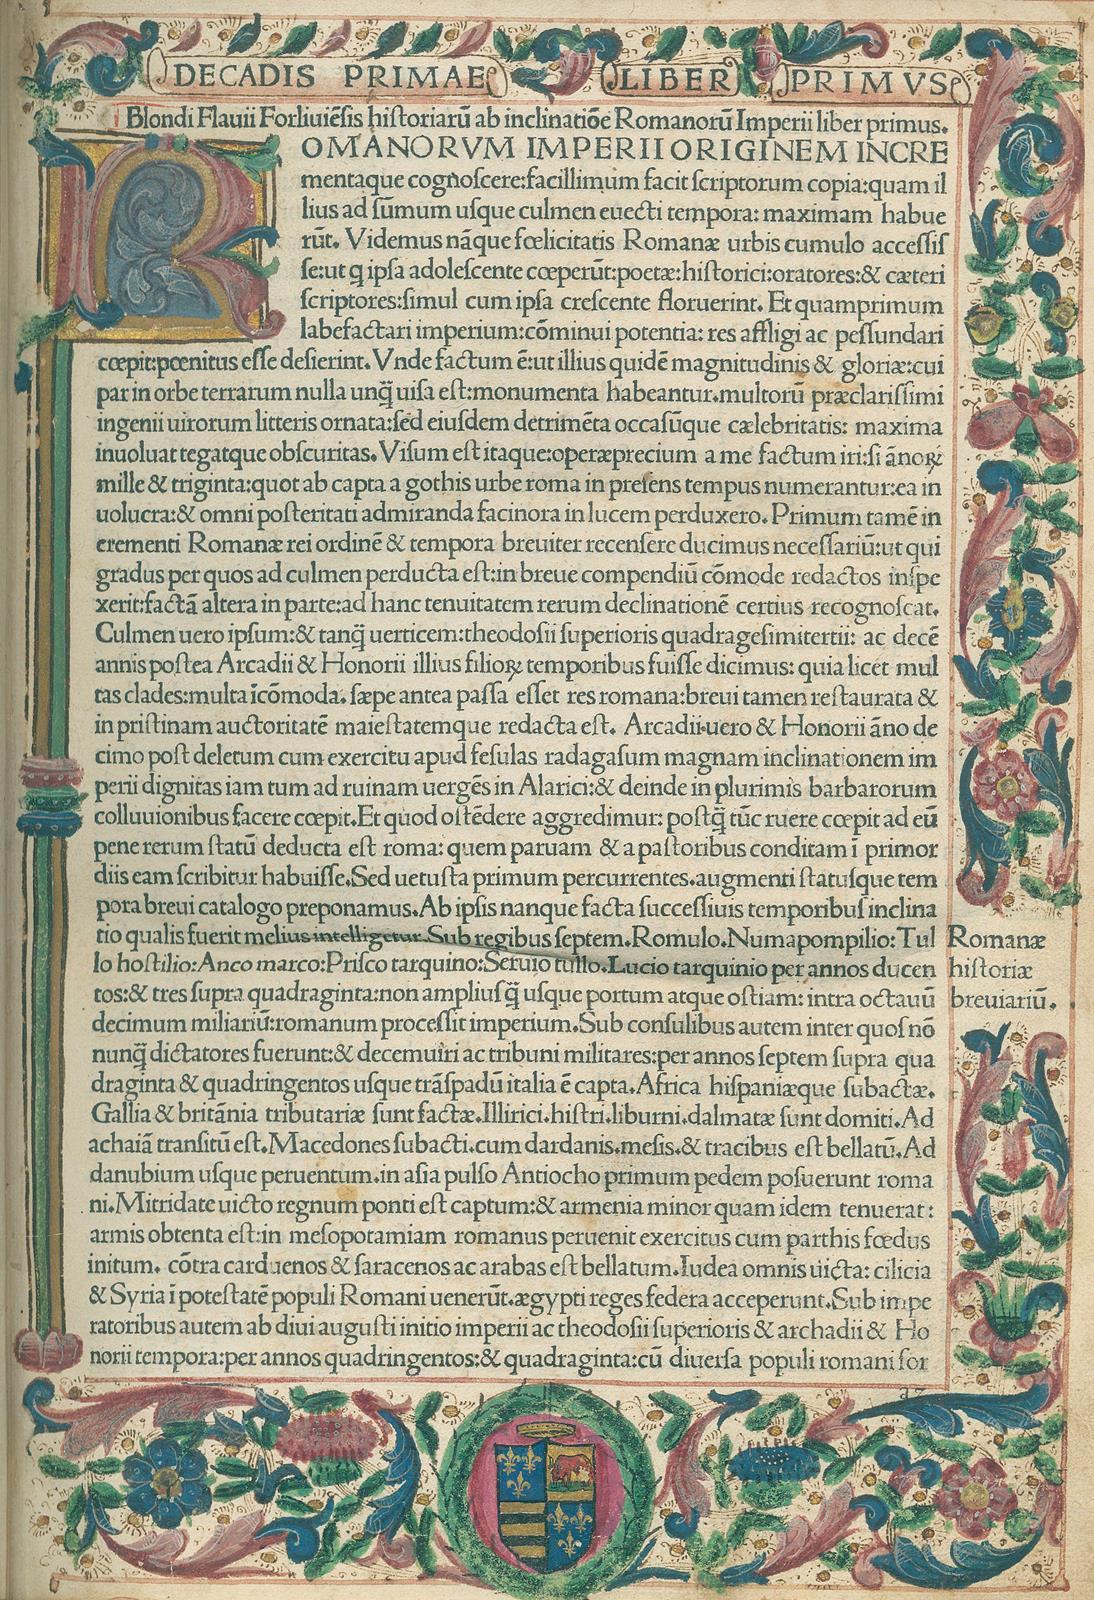 DECADIS PRIMAE LIBER PRIMVS
Blondi Flauii Forliuiẽsis hiſtoriarũ ab inclinatiõe Romanorũ Imperii liber primus.
ROMANORVM IMPERII ORIGINEM INCRE
mentaque cognoſcere:facillimum facit ſcriptorum copia:quam il
lius ad ſũmum uſque culmen euecti tempora: maximam habue
rũt. Videmus nãque fœlicitatis Romanæ urbis cumulo acceſſiſ
ſe:ut q̃ ipſa adoleſcente cœperũt:poetæ:hiſtorici:oratores:& cæteri
ſcriptores:ſimul cum ipſa creſcente floruerint. Et quamprimum
labefactari imperium:cõminui potentia: res affligi ac peſſundari
cœpit:pœnitus eſſe deſierint. Vnde factum ẽ:ut illius quidẽ magnitudinis & gloriæ:cui
par in orbe terrarum nulla unq̃ uiſa eſt:monumenta habeantur.multorũ præclariſſimi
ingenii uirorum litteris ornata:ſed eiuſdem detrimẽta occaſũque cælebritatis: maxima
inuoluat tegatque obſcuritas. Viſum eſt itaque:operæprecium a me factum iri:ſi ãnoꝝ
mille & triginta:quot ab capta a gothis urbe roma in preſens tempus numerantur:ea in
uolucra:& omni poſteritati admiranda facinora in lucem perduxero. Primum tamẽ in
crementi Romanæ rei ordinẽ & tempora breuiter recenſere ducimus neceſſariũ:ut qui
gradus per quos ad culmen perducta eſt:in breue compendiũ cõmode redactos inſpe
xerit:factã altera in parte:ad hanc tenuitatem rerum declinationẽ certius recognoſcat.
Culmen uero ipſum:& tanq̃ uerticem:theodoſii ſuperioris quadrageſimitertii: ac decẽ
annis poſtea Arcadii & Honorii illius filioꝝ temporibus fuiſſe dicimus: quia licet mul
tas clades:multa ĩcõmoda. ſæpe antea paſſa eſſet res romana:breui tamen reſtaurata &
in priſtinam auctoritatẽ maieſtatemque redacta eſt. Arcadii uero & Honorii ãno de
cimo poſt deletum cum exercitu apud feſulas radagaſum magnam inclinationem im
perii dignitas iam tum ad ruinam uergẽs in Alarici:& deinde in plurimis barbarorum
colluuionibus facere cœpit.Et quod oſtẽdere aggredimur: poſtq̃ tũc ruere cœpit ad eũ
pene rerum ſtatũ deducta eſt roma: quem paruam & a paſtoribus conditam ĩ primor
diis eam ſcribitur habuiſſe.Sed uetuſta primum percurrentes.augmenti ſtatuſque tem
pora breui catalogo preponamus.Ab ipſis nanque facta ſucceſſiuis temporibuſ inclina
tio qualis fuerit melius intelligetur.Sub regibus ſeptem.Romulo.Numapompilio:Tul
lo hoſtilio:Anco marco:Priſco tarquino:Seruio tullo.Lucio tarquinio per annos ducen
tos:& tres ſupra quadraginta:non ampliuſq̃ uſque portum atque oſtiam: intra octauũ
decimum miliariũ:romanum proceſſit imperium.Sub conſulibus autem inter quoſ nõ
nunq̃ dictatores fuerunt:& decemuiri ac tribuni militares:per annos ſeptem ſupra qua
draginta & quadringentos uſque trãſpadũ italia ẽ capta.Africa hiſpaniæque ſubactæ.
Gallia & britãnia tributariæ ſunt factæ.Illirici.hiſtri.liburni.dalmatæ ſunt domiti.Ad
achaiã tranſitũ eſt.Macedones ſubacti.cum dardanis.meſis.& tracibus eſt bellatũ.Ad
danubium uſque peruentum.in aſia pulſo Antiocho primum pedem poſuerunt roma
ni.Mitridate uicto regnum ponti eſt captum:& armenia minor quam idem tenuerat:
armis obtenta eſt:in meſopotamiam romanus peruenit exercitus cum parthis fœdus
initum. cõtra carduenos & ſaracenos ac arabas eſt bellatum.Iudea omnis uicta: cilicia
& Syria ĩ poteſtatẽ populi Romani uenerũt.ægypti reges federa acceperunt.Sub impe
ratoribus autem ab diui auguſti initio imperii ac theodoſii ſuperioris & archadii & Ho
norii tempora:per annos quadringentos:& quadraginta:cũ diuerſa populi romani for
Romanæ
hiſtoriæ
breuiariũ.